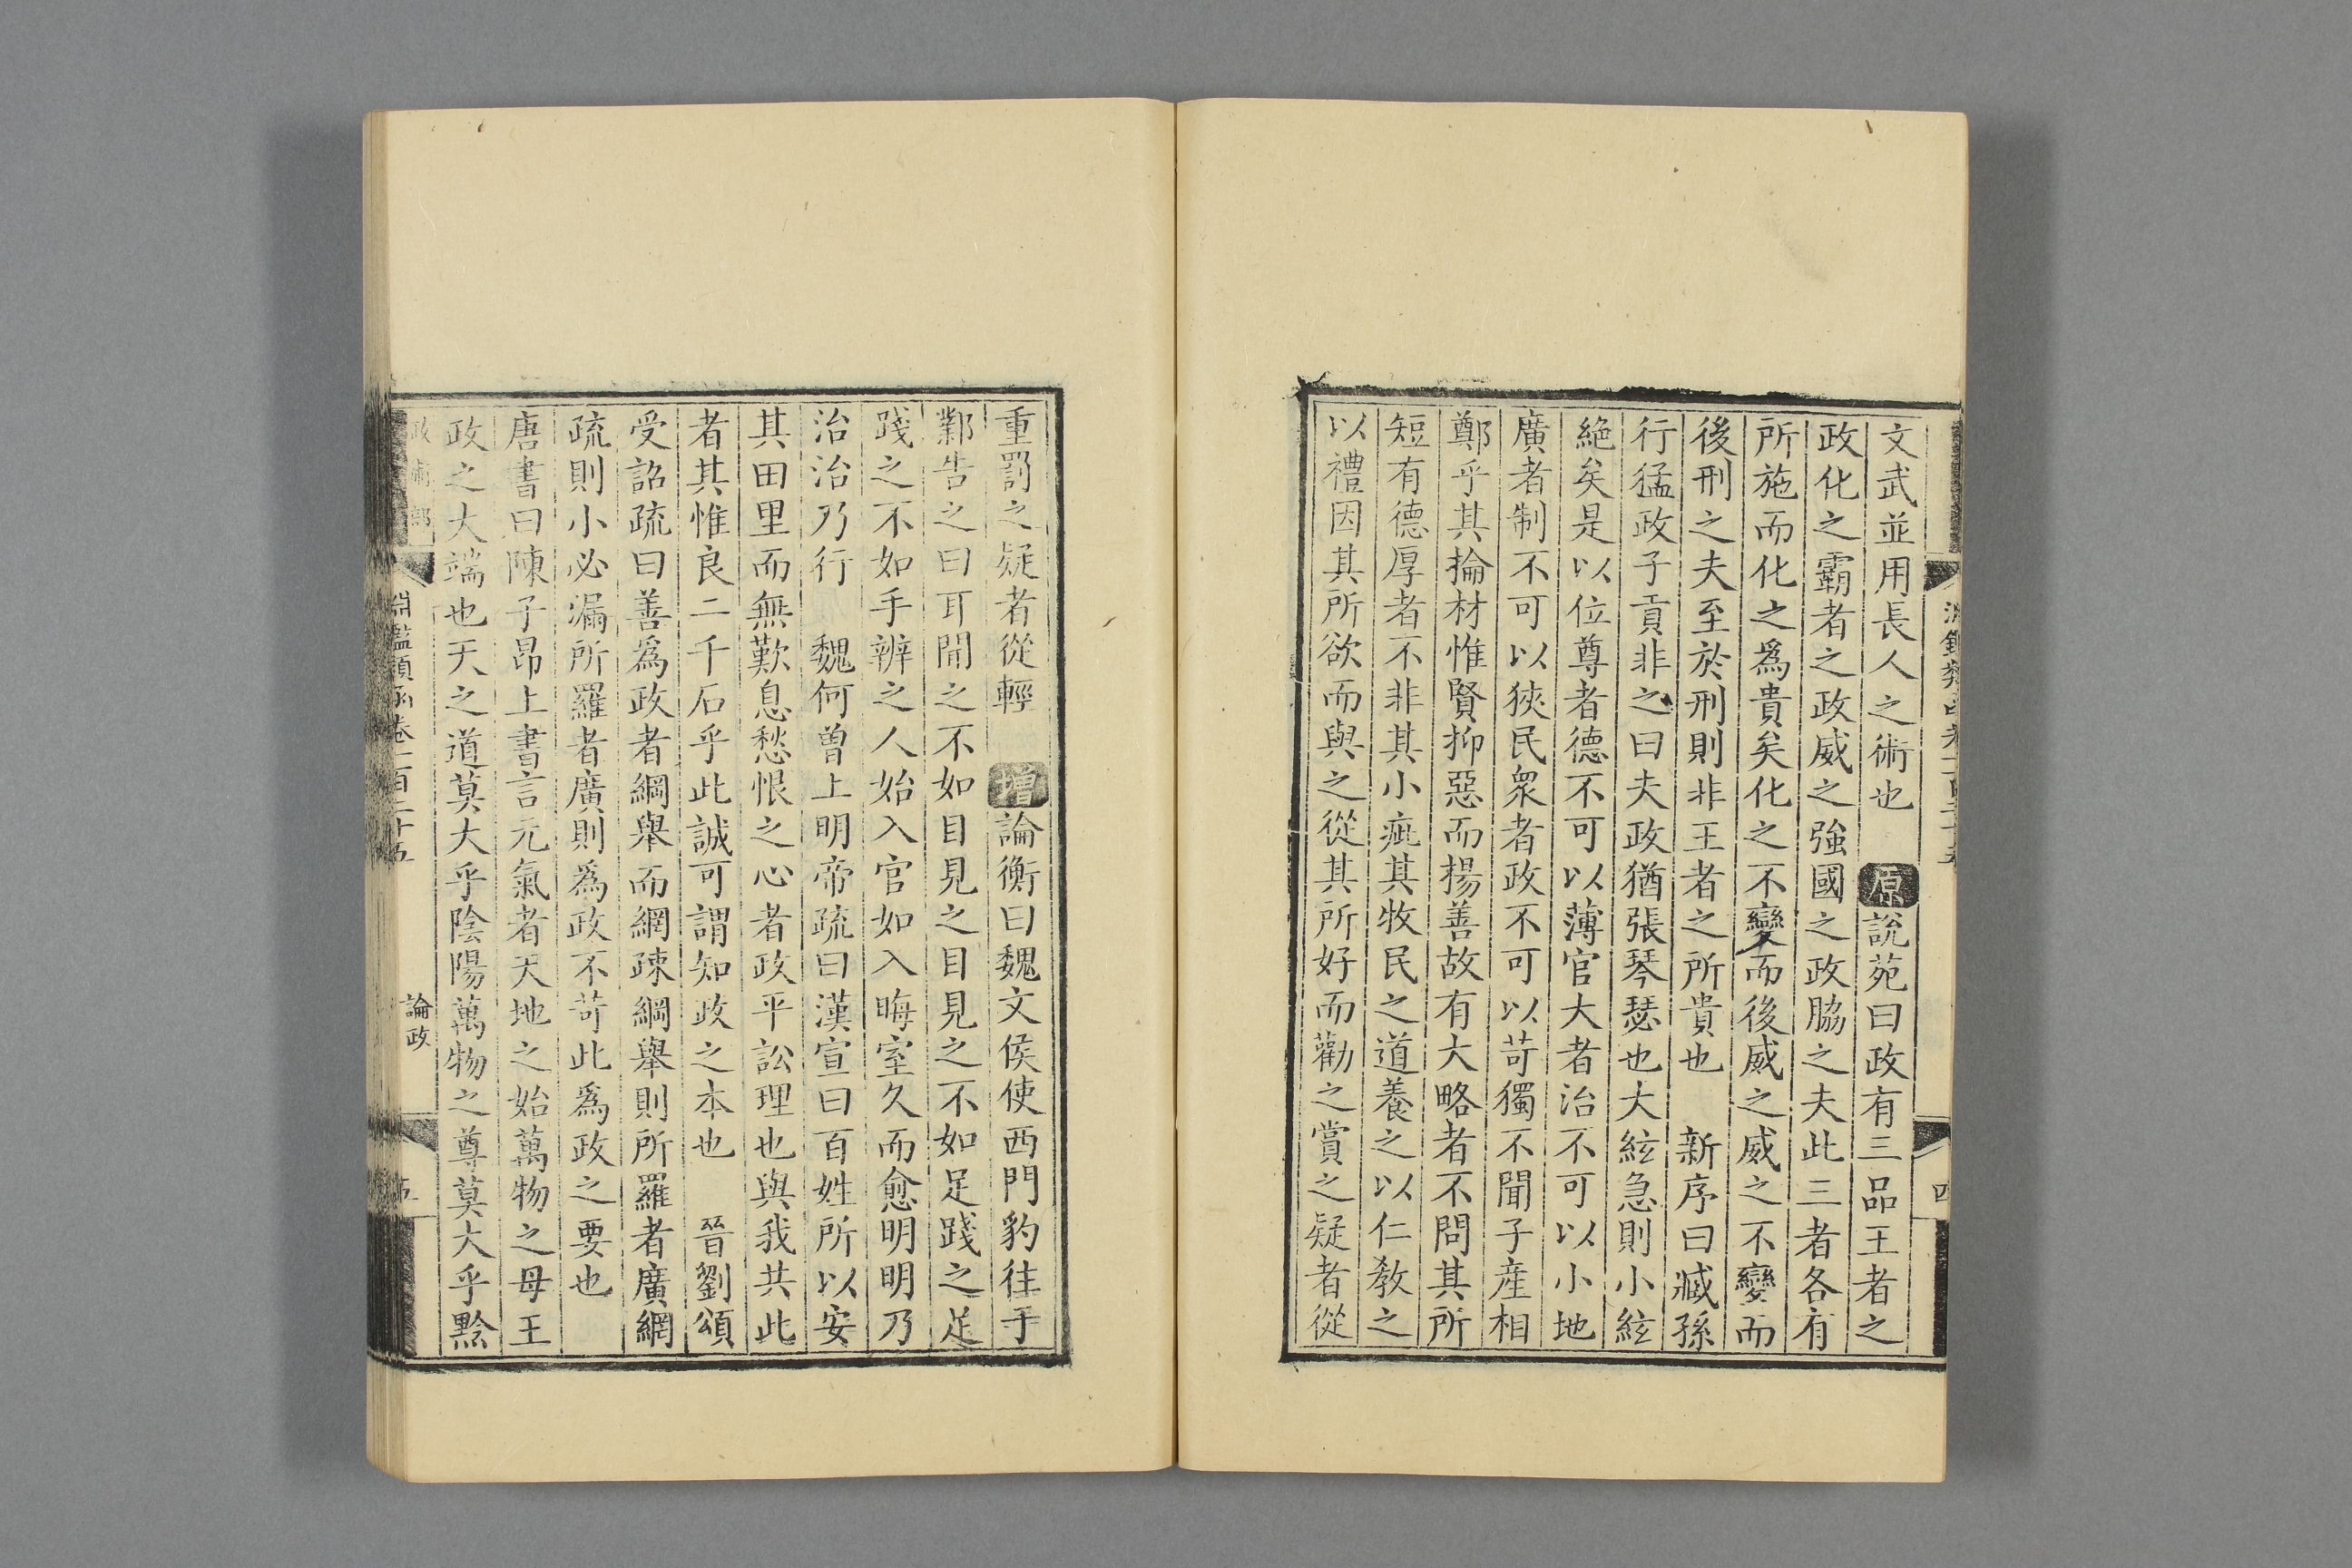 文武並用長人之術也　原說苑曰政有三品王者之
政化之霸者之政威之強國之政脇之夫此三者各有
所施而化之爲貴矣化之不變而後威之威之不變而
後刑之夫至於刑則非王者之所貴也　新序曰臧孫
行猛政子貢非之曰夫政猶張琴瑟也大絃急則小絃
絶矣是以位尊者德不可以薄官大者治不可以小地
廣者制不可以狹民衆者政不可以苛獨不聞子產相
鄭乎其掄材惟賢抑惡而揚善故有大略者不問其所
短有德厚者不非其小疵其牧民之道養之以仁敎之
以禮因其所欲而與之從其所好而勸之賞之疑者從
四
重罰之疑者從輕　增論衡曰魏文侯使西門豹往于
鄴告之曰耳聞之不如目見之目見之不如足踐之足
踐之不如手辨之人始入官如入晦室久而愈明明乃
治治乃行　魏何曾上明帝疏曰漢宣曰百姓所以安
其田里而無歎息愁恨之心者政平訟理也與我共此
者其惟良二千石乎此誠可謂知政之本也　晉劉頌
受詔疏曰善爲政者綱舉而網疎綱舉則所羅者廣網
疏則小必漏所羅者廣則爲政不苛此爲政之要也
唐書曰陳子昂上書言元氣者天地之始萬物之母王
政之大端也天之道莫大乎陰陽萬物之尊莫大乎黔
政術部　淵鑑類函卷一百二十五　論政　五